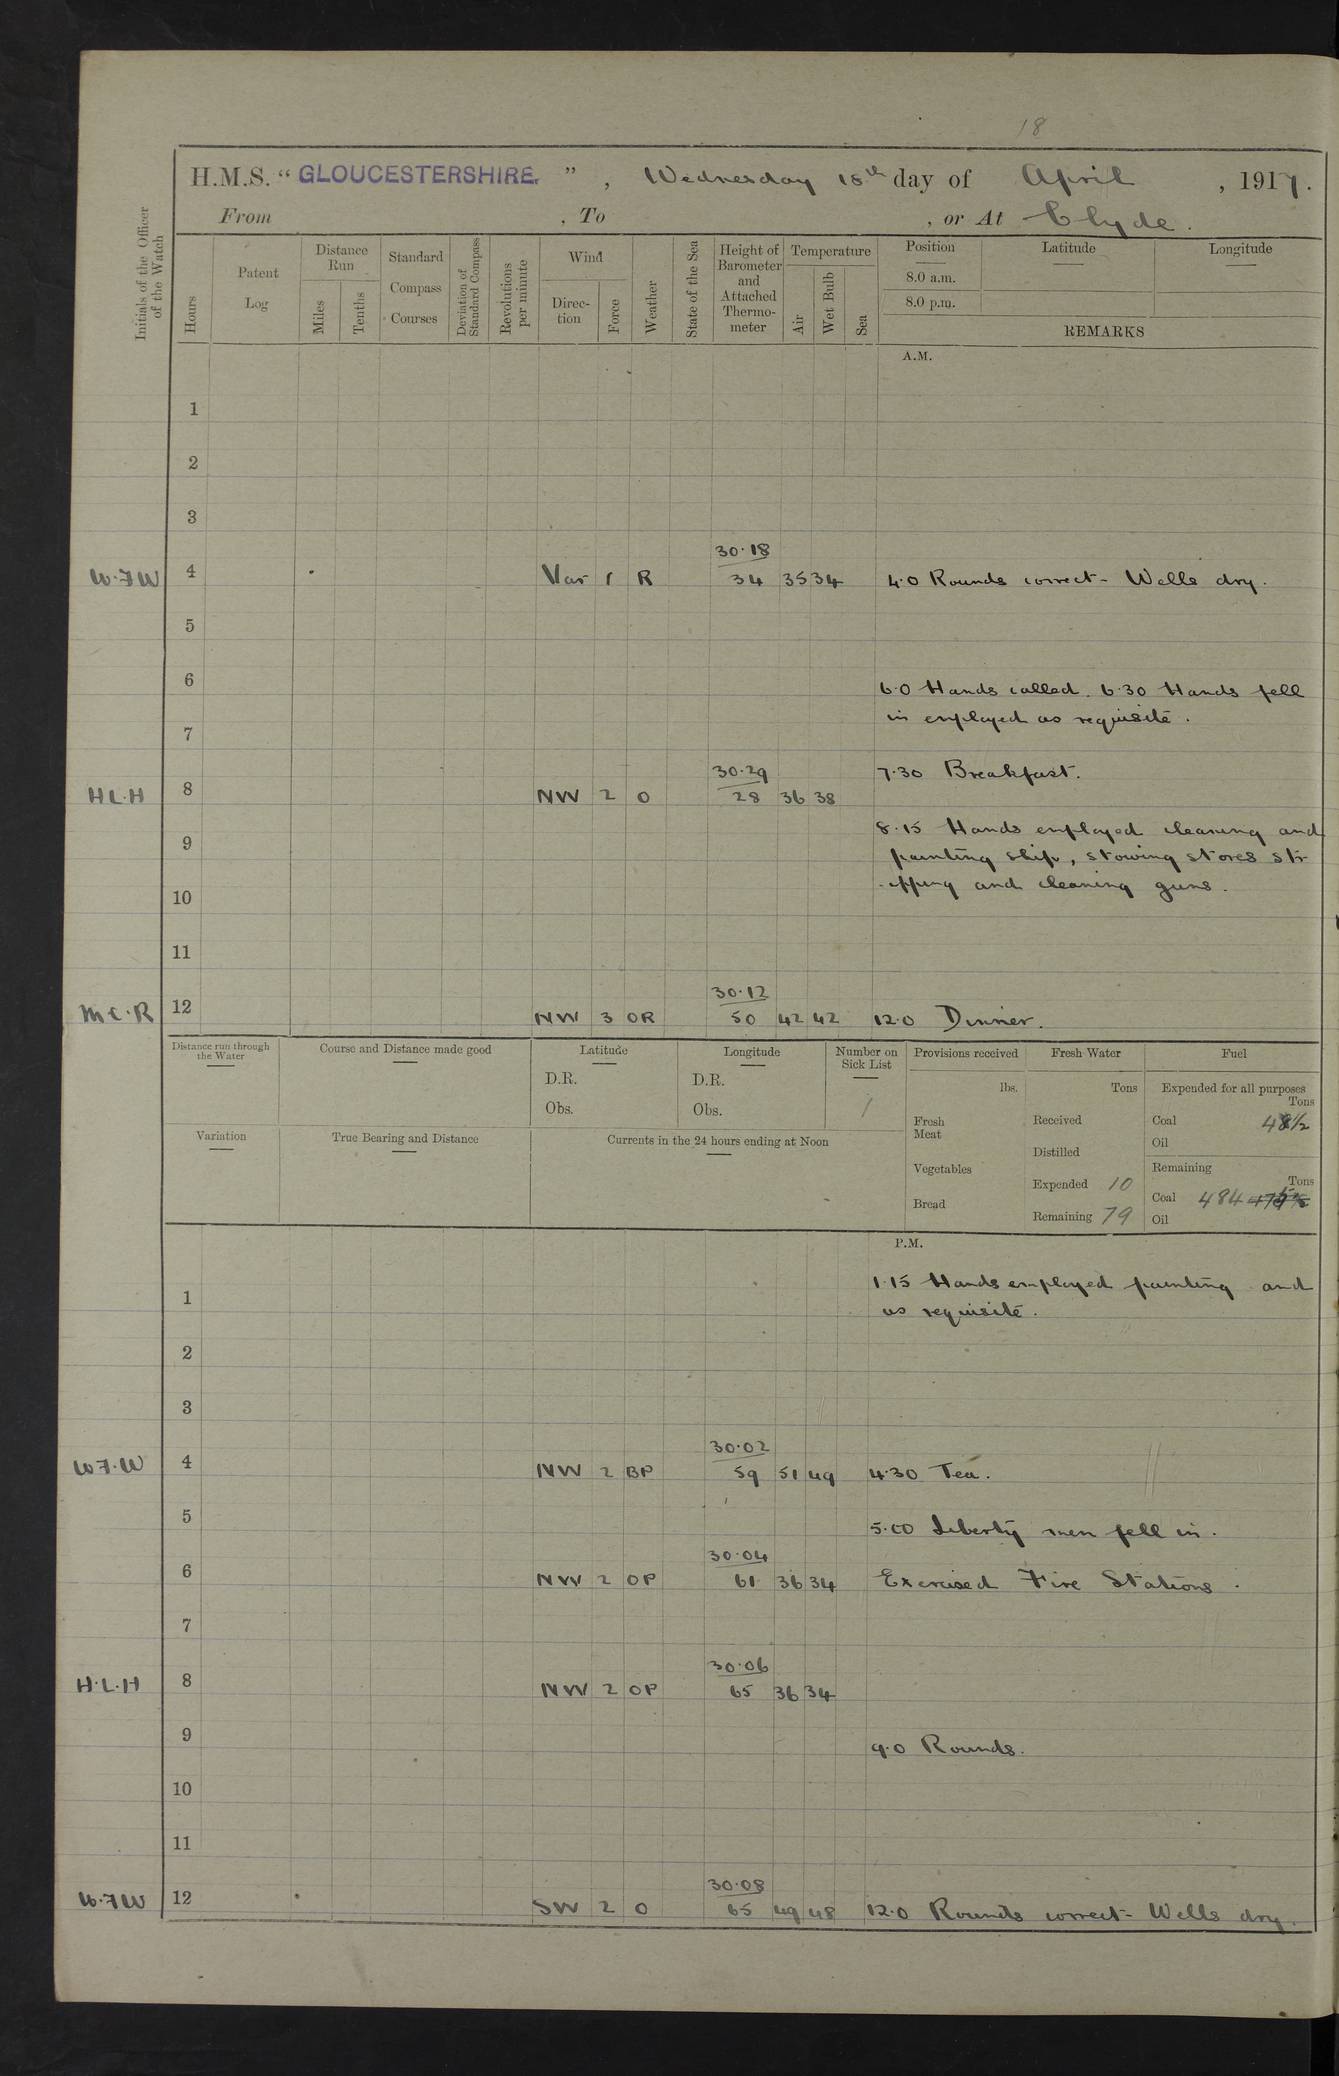 18
H.M.S. "GLOUCESTERSHIRE.", Wednesday 18th day of April, 1917.
From , To , or At Clyde.
Initials of the Officer of the Watch
Hours
Patent Log
Distance Run
Miles
Tenths
Standard Compass Courses
Deviation of Standard Compass
Revolutions per minute
Wind
Direction
Force
Weather
State of the Sea
Height of Barometer and Attached Thermometer
Temperature
Air
Wet Bulb
Sea
Position Latitude Longitude
8.0 a.m.
8.0 p.m.
REMARKS
A.M.
1
2
3
30.18
W.F.W 4 Var 1 R 34 35 34 4.0 Rounds correct - Wells dry.
5
6 6.0 Hands called. 6.30 Hands fell
in employed as requisite.
7
30.29 7.30 Breakfast.
H L.H 8 NW 2 O 28 36 38
8.15 Hands employed cleaning and
9
painting ship, stowing stores str
-ipping and cleaning guns.
10
11
30.12
M C.R 12 NW 3 OR 50 42 42 12.0 Dinner.
Distance run through the Water
Course and Distance made good
Latitude
D.R.
Obs.
Longitude
D.R.
Obs.
Number on Sick List
1
Variation
True Bearing and Distance
Currents in the 24 hours ending at Noon
Provisions received
lbs.
Fresh Meat
Vegetables
Bread
Fresh Water
Tons
Received
Distilled
Expended 10
Remaining 79
Fuel
Expended for all purposes
Tons
Coal 48½
Oil
Remaining
Tons
Coal 484
Oil
P.M.
1.15 Hands employed painting and
1
as requisite.
2
3
30.02
W F.W 4 NW 2 BP 59 51 49 4.30 Tea.
5 5.00 Liberty men fell in.
30.04
6 NW 2 OP 61 36 34 Exercised Fire Stations.
7
30.06
H.L.H 8 NW 2 OP 65 36 34
9 9.0 Rounds.
10
11
30.08
W.F W 12 SW 2 O 65 49 48 12.0 Rounds correct - Wells dry.